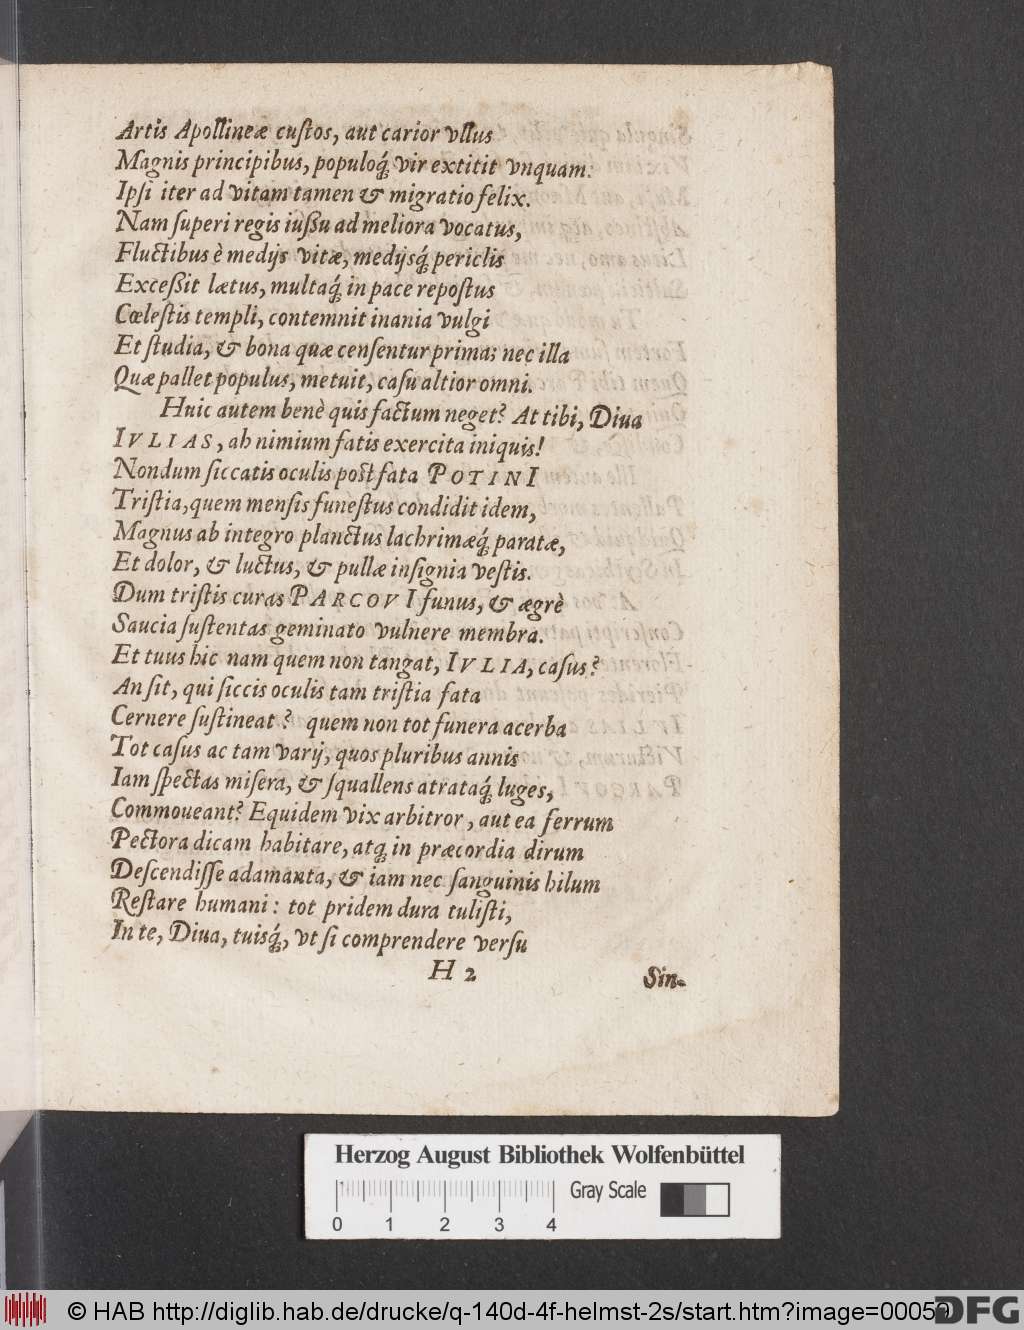 Artis Apollineæ cuſtos, aut carior vllus
Magnis principibus, populoq́; vir extitit vnquam:
Ipſi iter ad vitam tamen & migratio felix.
Nam ſuperi regis iuſſu ad meliora vocatus,
Fluctibus è medijs vitæ, medijsq́; periclis
Exceſſit lætus, multaq́; in pace repoſtus
Cœleſtis templi, contemnit inania vulgi
Et ſtudia, & bona quæ cenſentur prima; nec illa
Quæ pallet populus, metuit, caſu altior omni.
Huic autem benè quis factum neget? At tibi, Diua
IVLIAS, ah nimium fatis exercita iniquis!
Nondum ſiccatis oculis poſt fata POTINI
Triſtia, quem menſis funeſtus condidit idem,
Magnus ab integro planctus lachrimæq́; paratæ,
Et dolor, & luctus, & pullæ inſignia veſtis.
Dum triſtis curas PARCOVI funus, & ægrè
Saucia ſuſtentas geminato vulnere membra.
Et tuus hic nam quem non tangat, IVLIA, caſus?
An ſit, qui ſiccis oculis tam triſtia fata
Cernere ſuſtineat? quem non tot funera acerba
Tot caſus ac tam varij, quos pluribus annis
Iam ſpectas miſera, & ſquallens atrataq́; luges,
Commoueant? Equidem vix arbitror, aut ea ferrum
Pectora dicam habitare, atq; in præcordia dirum
Deſcendiſſe adamanta, & iam nec ſanguinis hilum
Reſtare humani: tot pridem dura tuliſti,
In te, Diua, tuisq́;, vt ſi comprendere verſu
H 2 Sin-
Herzog August Bibliothek Wolfenbüttel
Gray Scale
0 1 2 3 4
© HAB http://diglib.hab.de/drucke/q-140d-4f-helmst-2s/start.htm?image=00059
DFG